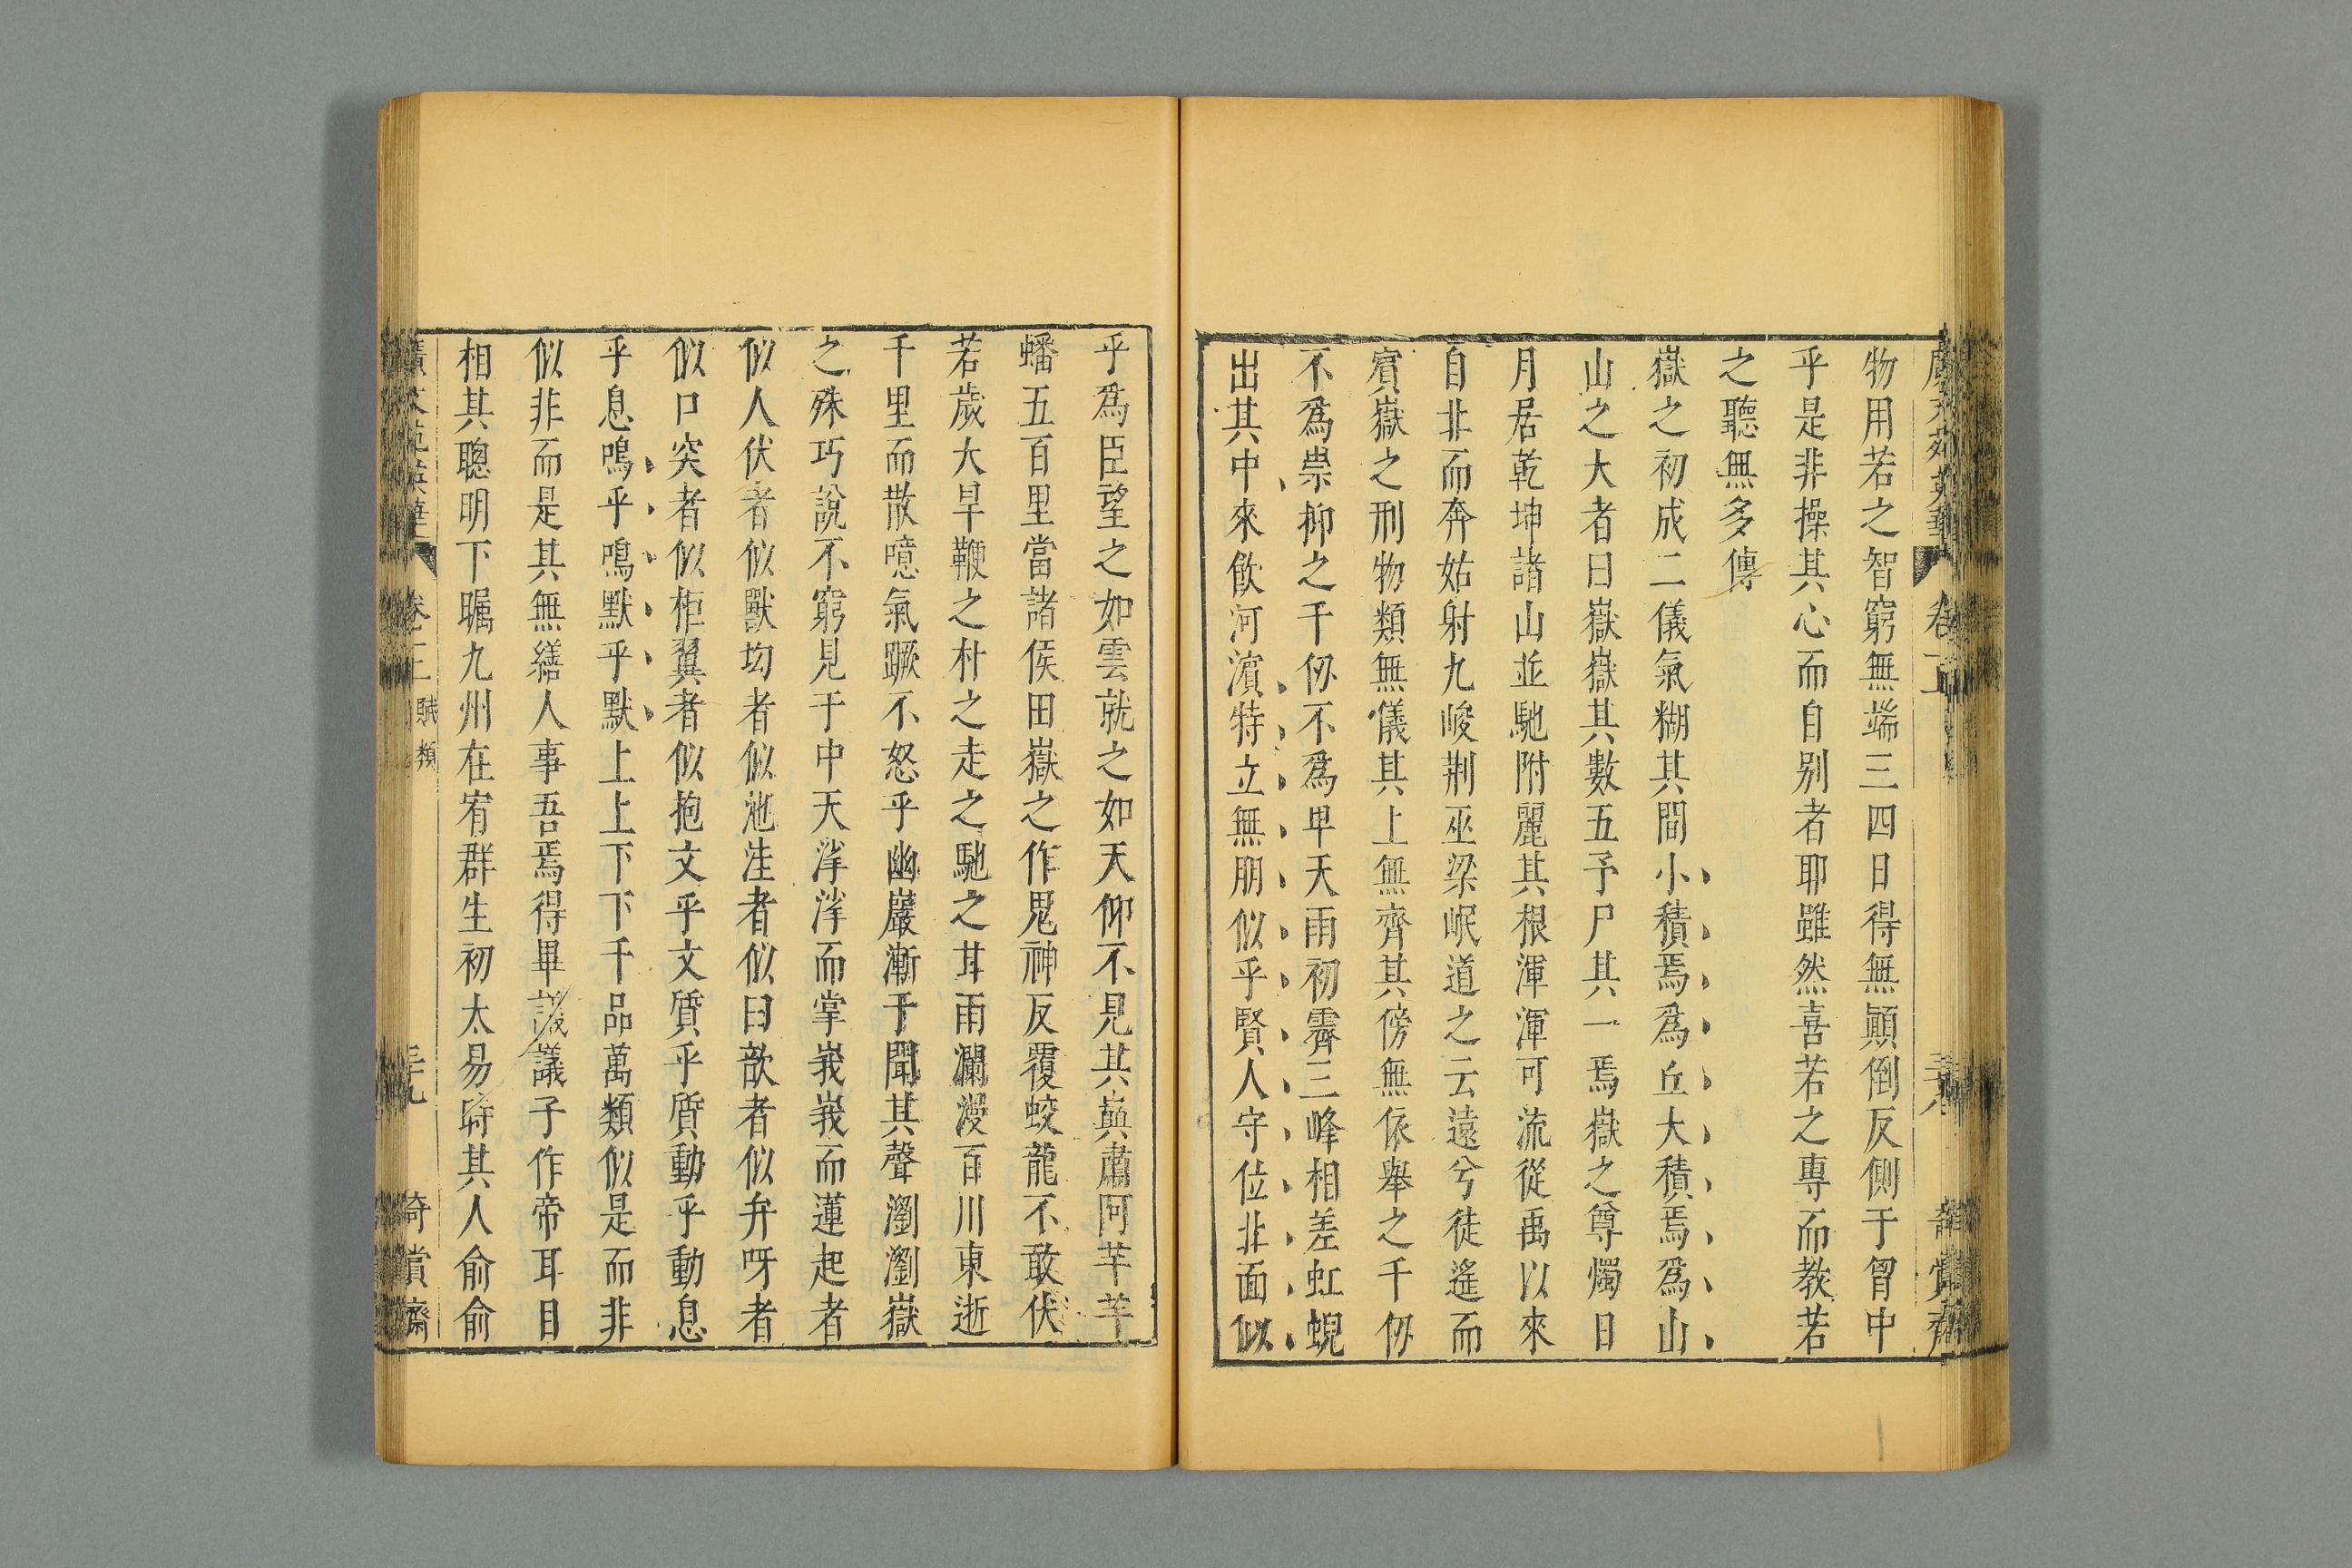 物用若之智窮無端三四日得無顚倒反側于胷中
乎是非操其心而自别者耶雖然喜若之專而教若
之聽無多傳
嶽之初成二儀氣糊其間小積焉爲丘大積焉爲山
山之大者曰嶽嶽其數五予尸其一焉嶽之尊燭日
月居乾坤諸山並馳附麗其根渾渾可流從禹以來
自北而奔姑射九峻荆巫梁岷道之云遠兮徒遙而
賓嶽之刑物類無儀其上無齊其傍無依舉之千仞
不爲崇抑之千仞不爲卑天雨初霽三峰相差虹蜺
出其中來飲河濵特立無朋似乎賢人守位北面似
乎爲臣望之如雲就之如天仰不見其巔肅阿芊芊
蟠五百里當諸侯田嶽之作鬼神反覆蛟龍不敢伏
若歲大旱鞭之朴之走之馳之甘雨瀾漫百川東逝
千里而散噫氣蹶不怒乎幽巖漸于聞其聲瀏瀏嶽
之殊巧説不窮見于中天㴞㴞而掌峩峩而蓮起者
似人伏者似獸坳者似池洼者似臼欹者似弁呀者
似口突者似柜翼者似抱文乎文質乎質動乎動息
乎息鳴乎鳴默乎默上上下下千品萬類似是而非
似非而是其無繕人事吾焉得畢議議子作帝耳目
相其聰明下瞩九州在宥群生初太易時其人俞俞
卷二 賦類 三九 倚賞齋